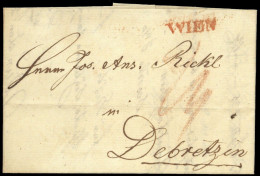 WIEN
Herrn Jos. Ans. Rickl
in
Debretzin